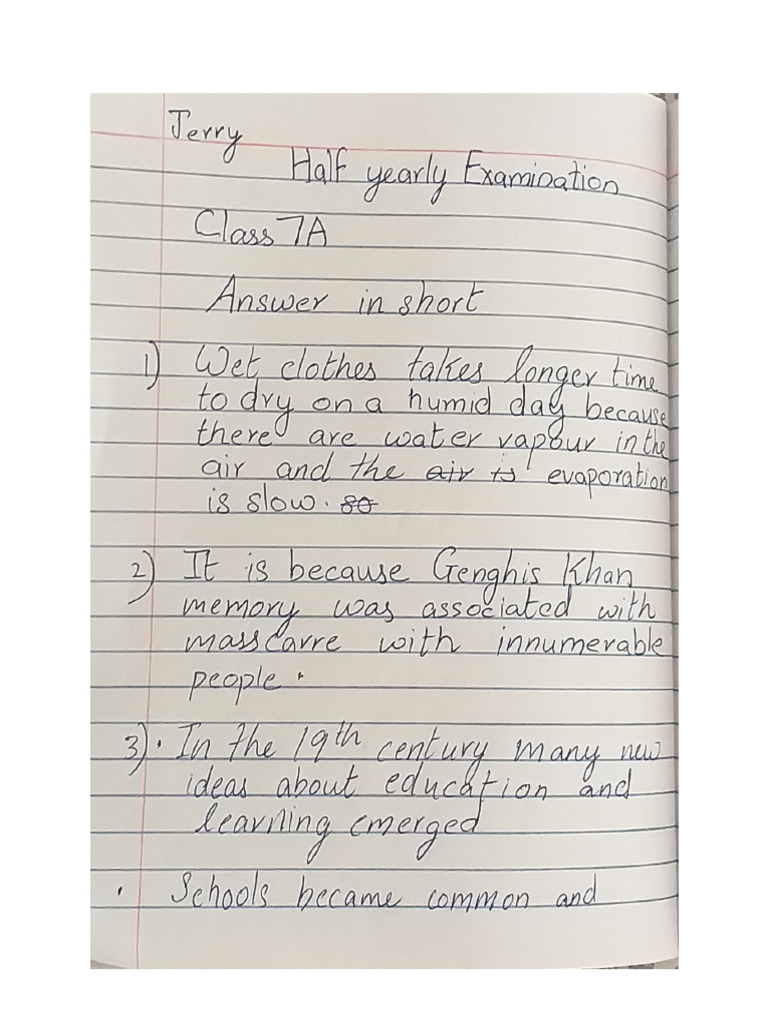 Jerry
Half yearly Examination
Class 7A
Answer in short
1) Wet clothes takes longer time
to dry on a humid day because
there are water vapour in the
air and the air is evaporation
is slow. so
2) It is because Genghis Khan
memory was associated with
masscarre with innumerable
people.
3) • In the 19th century many new
ideas about education and
learning emerged
• Schools became common and